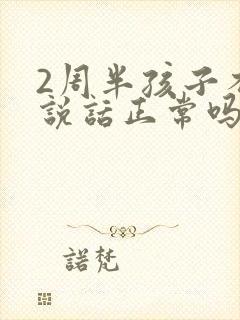 2周半孩子
說話正常吗
諾梵